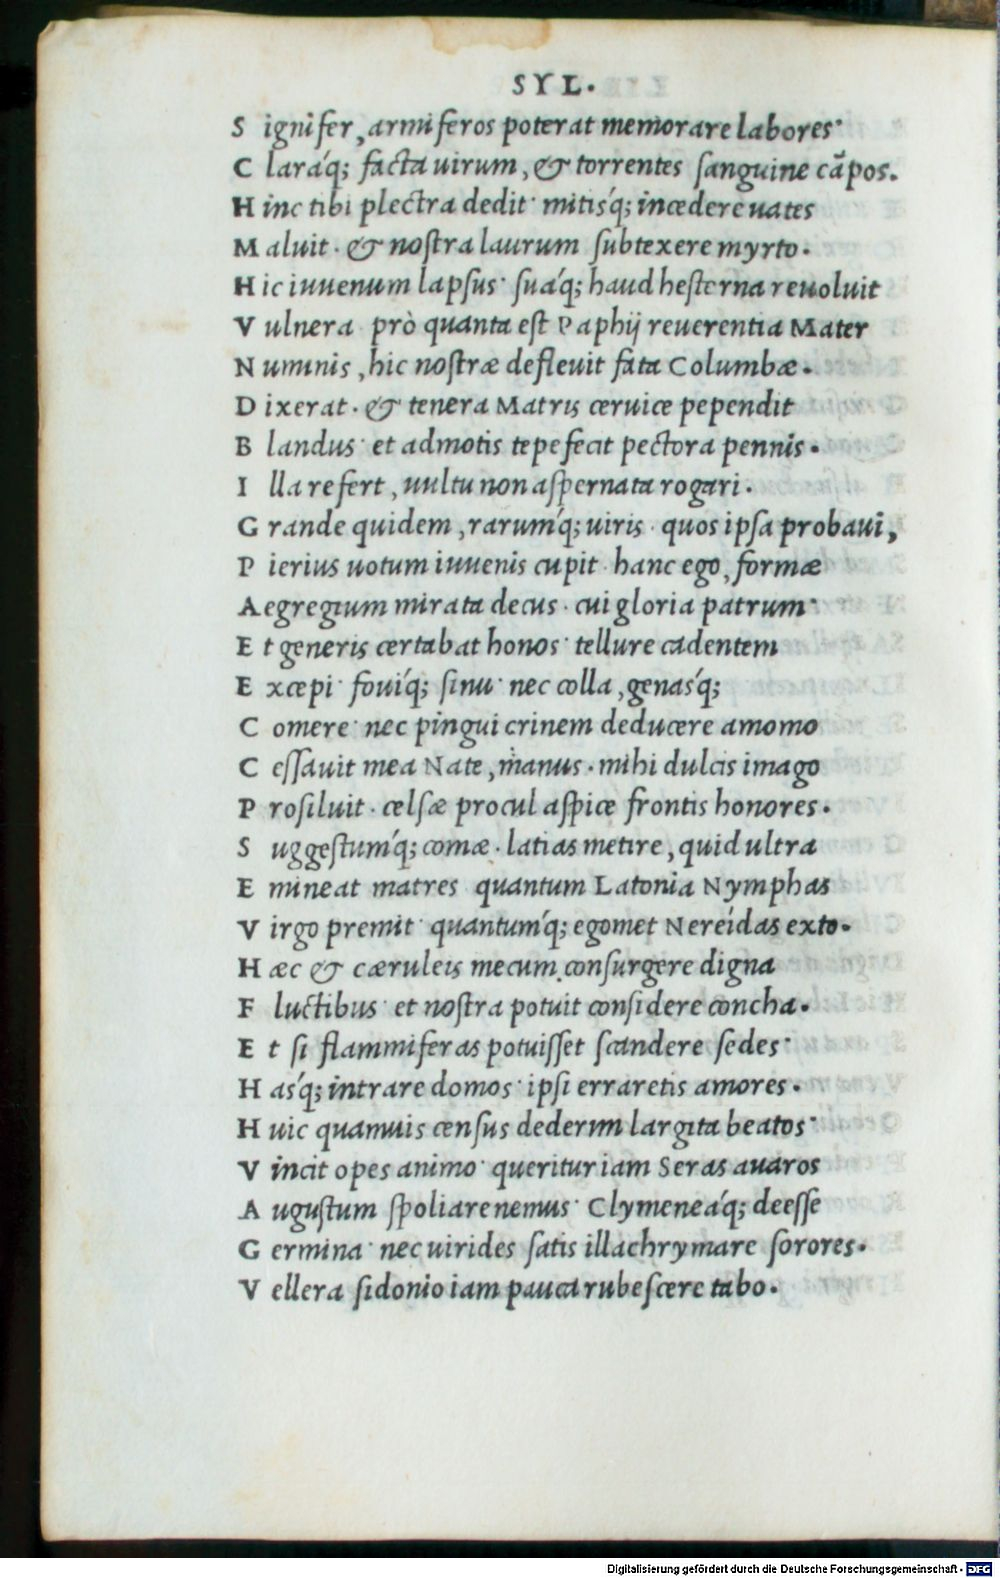 SYL.
S ignifer, armiferos poterat memorare labores·
C lara'q; facta uirum, & torrentes sanguine cãpos.
H inc tibi plectra dedit· mitis'q; incedere uates
M aluit· & nostra laurum subtexere myrto.
H ic iuuenum lapsus· sua'q; haud hesterna reuoluit
V ulnera prò quanta est Paphij reuerentia Mater
N uminis, hic nostræ defleuit fata Columbæ.
D ixerat· & tenera Matris ceruice pependit
B landus· et admotis tepefecit pectora pennis.
I lla refert, uultu non aspernata rogari.
G rande quidem, rarum'q; uiris· quos ipsa probaui,
P ierius uotum iuuenis cupit· hanc ego, formæ
A egregium mirata decus· cui gloria patrum·
E t generis certabat honos· tellure cadentem
E xcepi· foui'q; sinu· nec colla, genas'q;
C omere· nec pingui crinem deducere amomo
C essauit mea Nate, manus· mihi dulcis imago
P rosiluit· celsæ procul aspice frontis honores.
S uggestum'q; comæ· latias metire, quid ultra
E mineat matres quantum Latonia Nymphas
V irgo premit· quantum'q; egomet Nereidas exto.
H æc & cæruleis mecum consurgere digna
F luctibus· et nostra potuit considere concha.
E t si flammiferas potuisset scandere sedes·
H as'q; intrare domos· ipsi erraretis amores.
H uic quamuis census dederim largita beatos·
V incit opes animo· queritur iam Seras auaros
A ugustum spoliare nemus· Clymenea'q; deesse
G ermina· nec uirides satis illachrymare sorores.
V ellera sidonio iam pauca rubescere tabo.
Digitalisierung gefördert durch die Deutsche Forschungsgemeinschaft - DFG